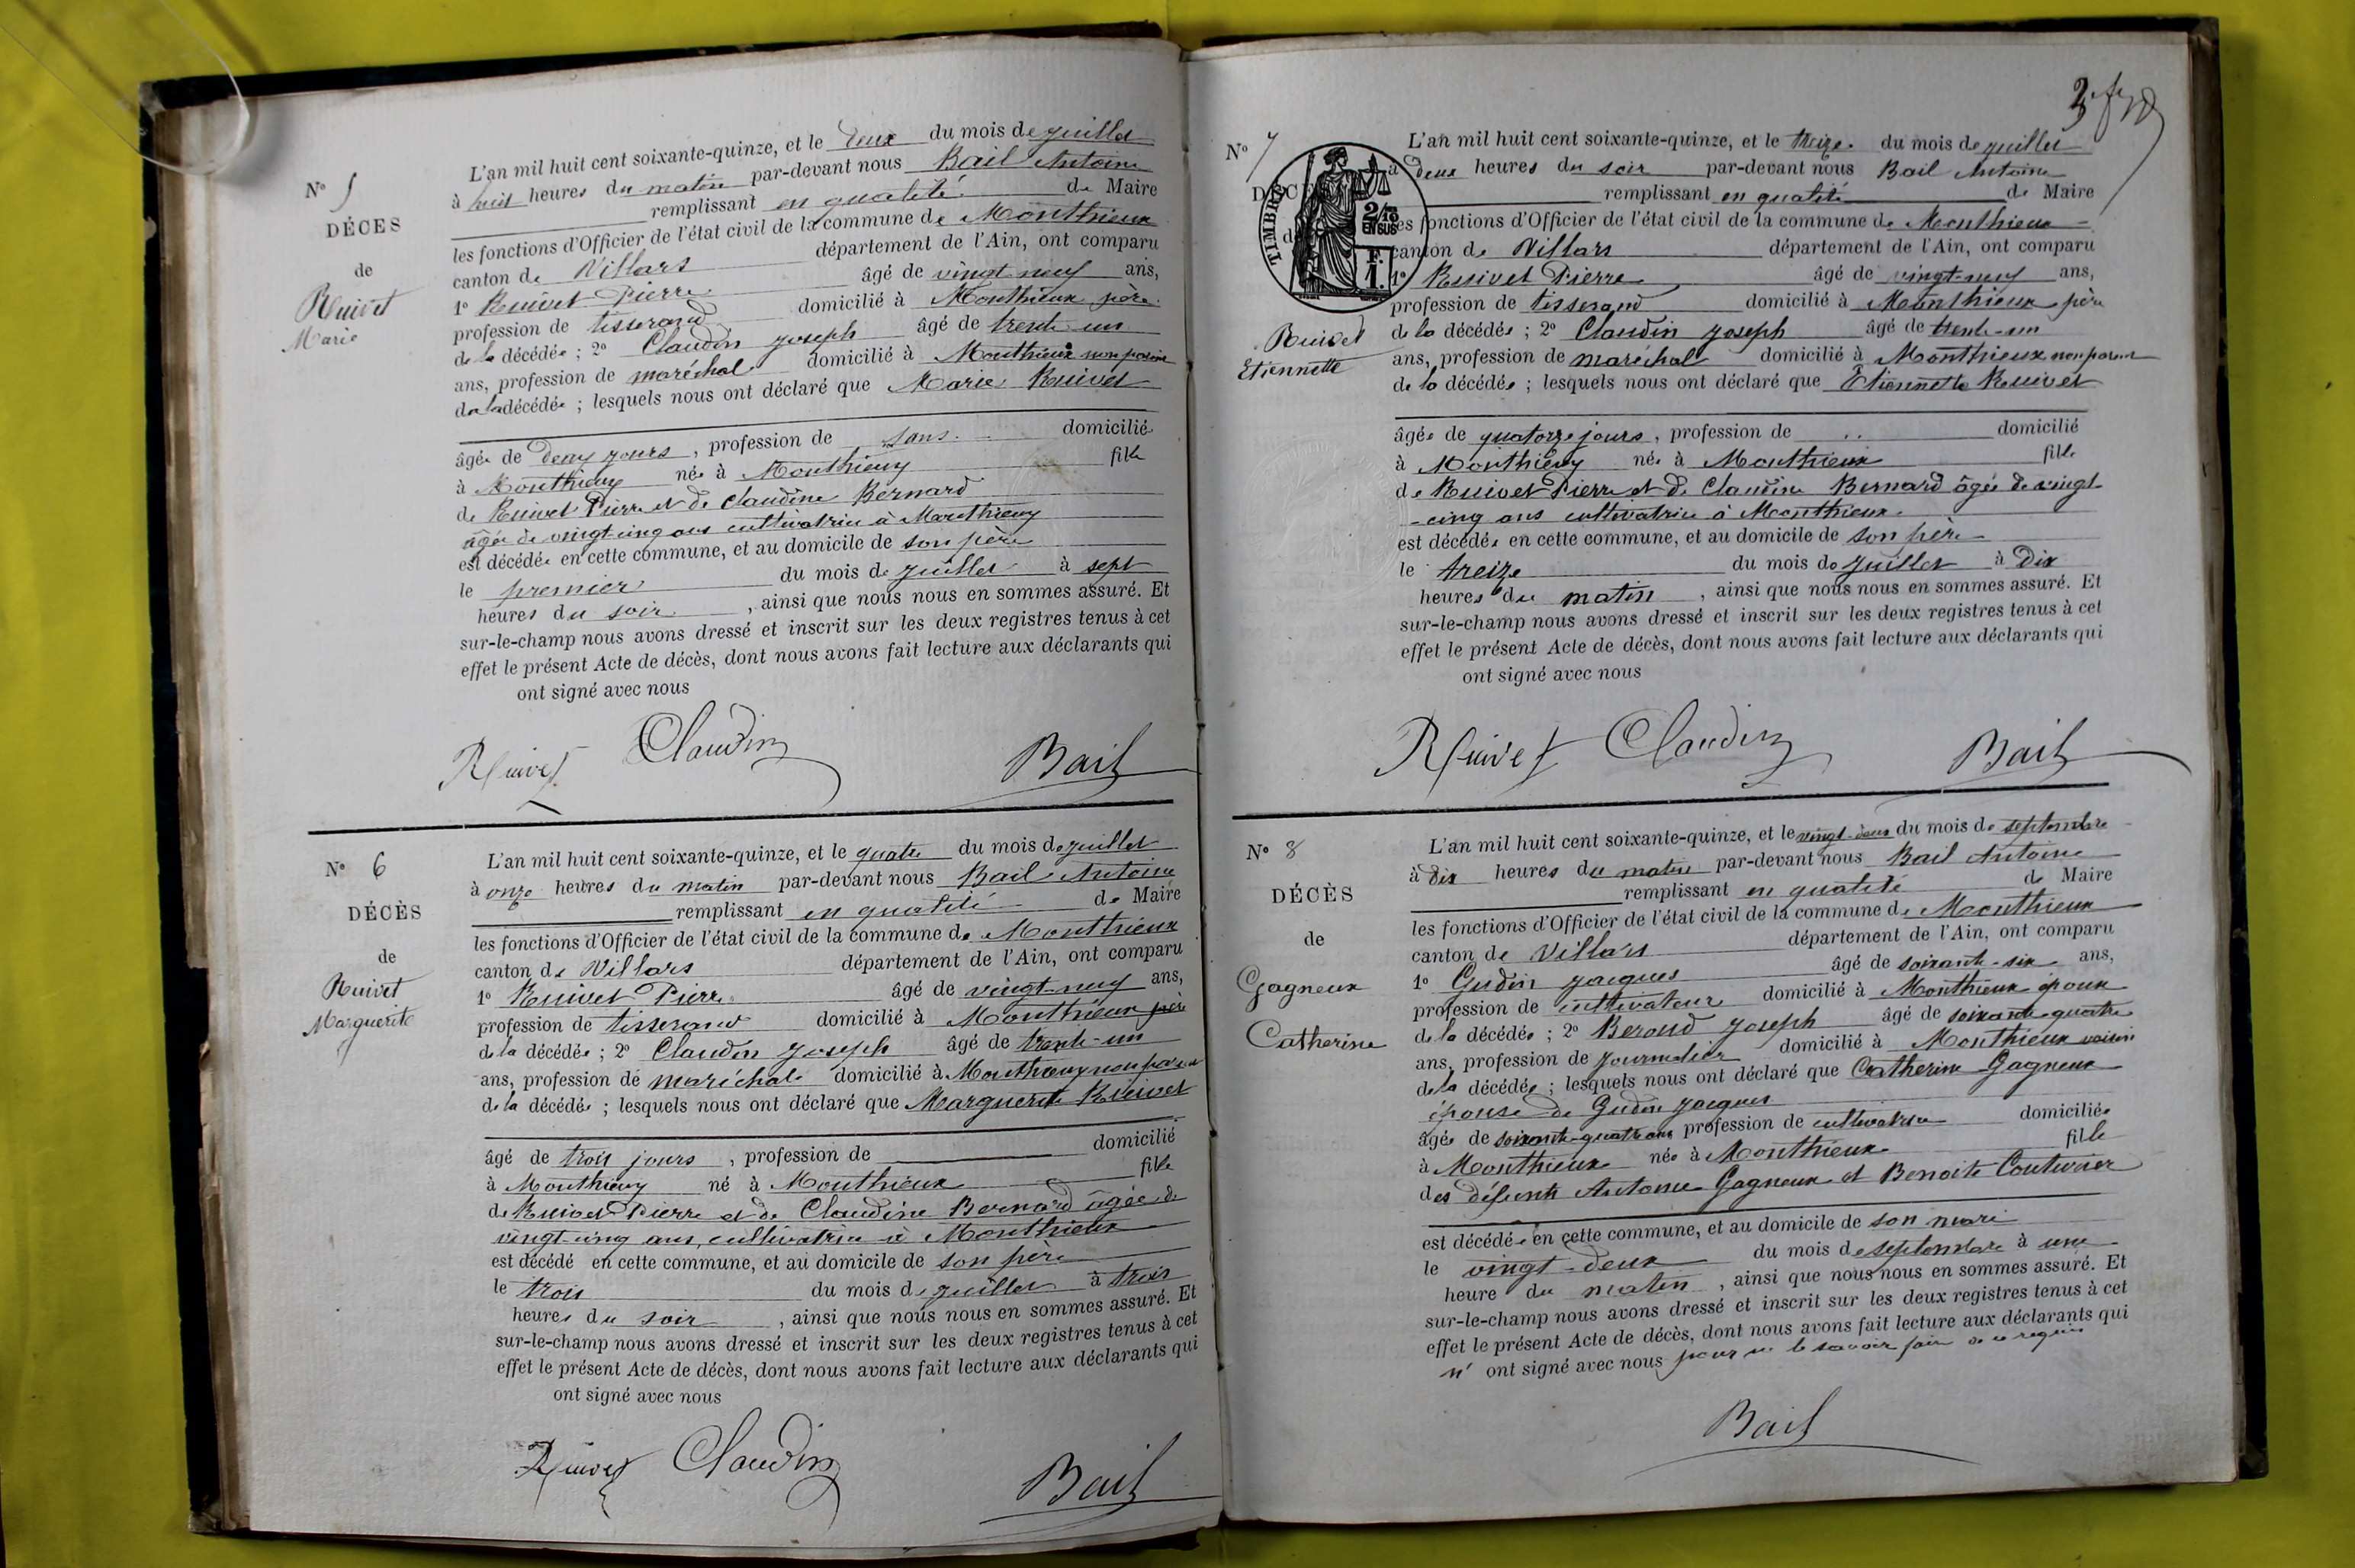 N° 5
DÉCES
de
Ruivet
Marie
L'an mil huit cent soixante-quinze, et le deux du mois de juillet
à huit heures du matin par-devant nous Bail Antoine
remplissant en qualité de Maire
les fonctions d'Officier de l'état civil de la commune de Monthieux
canton de Villars département de l'Ain, ont comparu
1° Ruivet Pierre âgé de vingt neuf ans,
profession de tisserand domicilié à Monthieux père
de la décédée ; 2° Claudin joseph âgé de trente un
ans, profession de maréchal domicilié à Monthieux non parent
de la décédée ; lesquels nous ont déclaré que Marie Ruivet
âgée de deux jours, profession de sans domicilié
à Monthieux née à Monthieux fille
de Ruivet Pierre et de Claudine Bernard
âgée de vingt-cinq ans cultivatrice à Monthieux
est décédée en cette commune, et au domicile de son père
le premier du mois de juillet à sept
heures du soir, ainsi que nous nous en sommes assuré. Et
sur-le-champ nous avons dressé et inscrit sur les deux registres tenus à cet
effet le présent Acte de décès, dont nous avons fait lecture aux déclarants qui
ont signé avec nous
Ruivet Claudin Bail
N° 6
DÉCÈS
de
Ruivet
Marguerite
L'an mil huit cent soixante-quinze, et le quatre du mois de juillet
à onze heures du matin par-devant nous Bail Antoine
remplissant en qualité de Maire
les fonctions d'Officier de l'état civil de la commune de Monthieux
canton de Villars département de l'Ain, ont comparu
1° Ruivet Pierre âgé de vingt-neuf ans,
profession de tisserand domicilié à Monthieux père
de la décédée ; 2° Claudin joseph âgé de trente-un
ans, profession de maréchal domicilié à Monthieux non parent
de la décédée ; lesquels nous ont déclaré que Marguerite Ruivet
âgé de trois jours, profession de domicilié
à Monthieux né à Monthieux fille
de Ruivet Pierre et de Claudine Bernard âgée de
vingt-cinq ans, cultivatrice à Monthieux
est décédé en cette commune, et au domicile de son père
le trois du mois de juillet à trois
heures du soir, ainsi que nous nous en sommes assuré. Et
sur-le-champ nous avons dressé et inscrit sur les deux registres tenus à cet
effet le présent Acte de décès, dont nous avons fait lecture aux déclarants qui
ont signé avec nous
Ruivet Claudin Bail
3
N° 7
DÉCÈS
de
TIMBRE
2/10 EN SUS
1 F.
Ruivet
Etiennette
L'an mil huit cent soixante-quinze, et le treize du mois de juillet
à deux heures du soir par-devant nous Bail Antoine
remplissant en qualité de Maire
les fonctions d'Officier de l'état civil de la commune de Monthieux
canton de Villars département de l'Ain, ont comparu
1° Ruivet Pierre âgé de vingt-neuf ans,
profession de tisserand domicilié à Monthieux père
de la décédée ; 2° Claudin joseph âgé de trente-un
ans, profession de maréchal domicilié à Monthieux non parent
de la décédée ; lesquels nous ont déclaré que Etiennette Ruivet
âgée de quatorze jours, profession de .. domicilié
à Monthieux née à Monthieux fille
de Ruivet Pierre et de Claudine Bernard âgée de vingt-
-cinq ans cultivatrice à Monthieux
est décédée en cette commune, et au domicile de son père
le treize du mois de juillet à dix
heures du matin, ainsi que nous nous en sommes assuré. Et
sur-le-champ nous avons dressé et inscrit sur les deux registres tenus à cet
effet le présent Acte de décès, dont nous avons fait lecture aux déclarants qui
ont signé avec nous
Ruivet Claudin Bail
N° 8
DÉCÈS
de
Gagneux
Catherine
L'an mil huit cent soixante-quinze, et le vingt-deux du mois de septembre
à dix heures du matin par-devant nous Bail Antoine
remplissant en qualité de Maire
les fonctions d'Officier de l'état civil de la commune de Monthieux
canton de Villars département de l'Ain, ont comparu
1° Gudin jacques âgé de soixante-six ans,
profession de cultivateur domicilié à Monthieux époux
de la décédée ; 2° Beroud joseph âgé de soixante-quatre
ans, profession de journalier domicilié à Monthieux voisin
de la décédée ; lesquels nous ont déclaré que Catherine Gagneux
épouse de Gudin jacques
âgée de soixante-quatre ans profession de cultivatrice domiciliée
à Monthieux née à Monthieux fille
des défunts Antoine Gagneux et Benoite Couturier
est décédée en cette commune, et au domicile de son mari
le vingt-deux du mois de septembre à une
heure du matin, ainsi que nous nous en sommes assuré. Et
sur-le-champ nous avons dressé et inscrit sur les deux registres tenus à cet
effet le présent Acte de décès, dont nous avons fait lecture aux déclarants qui
n'ont signé avec nous pour ne le savoir faire de ce requis
Bail